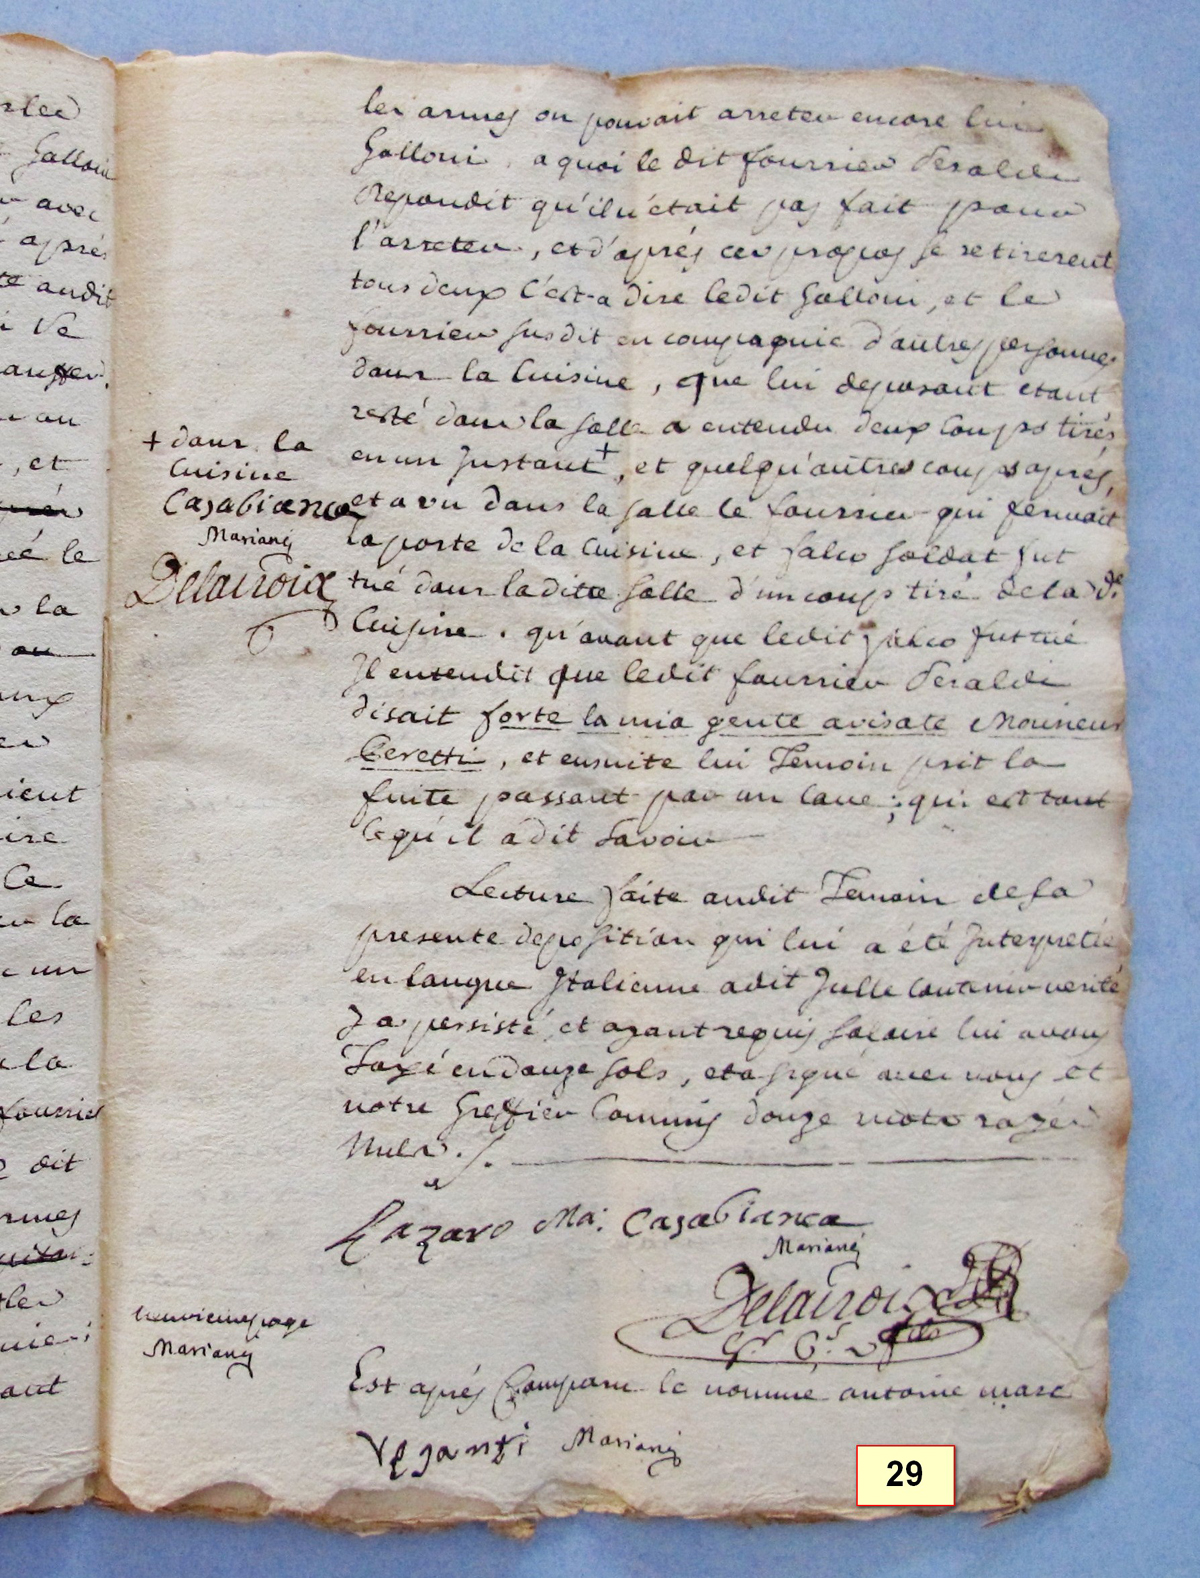 les armes on pouvait arreter encore lui
Galloni, a quoi le dit fourrier Peraldi
Repondit qu'il n'etait pas fait pour
l'arreter, et d'aprés ces propos se retirerent
tous deux c'est-a dire ledit Galloni, et le
fourrier susdit en compagnie d'autres personnes
dans la Cuisine, que lui deposant etant
resté dans la salle a entendu deux coups tirés
en un Instant +, et quelqu'autres coups aprés,
et a vu dans la salle le fourrier qui fermait
la porte de la Cuisine, et Falco soldat fut
tué dans ladite salle d'un coup tiré de la de.
Cuisine. qu'avant que ledit Falco fut tué
Il entendit que ledit fourrier Peraldi
disait forte la mia gente avisate Monsieur
Ceretti, et ensuite lui Temoin prit la
fuite passant par un cave ; qui est tout
ce qu'il a dit savoir
Lecture faite audit Temoin de la
presente deposition qui lui a été Interpretée
en langue Italienne a dit Icelle contenir verité
y a persisté, et ayant requis salaire lui avons
Taxé en douze sols, et a signé avec nous et
notre Greffier Commis douze mots rayés
nuls ./.
Lazaro Ma: Casabianca
Mariani
Delacroix
Est aprés Comparu le nommé antoine marc
Mariani
+ dans la
Cuisine
Casabianca
Mariani
Delacroix
neuvieme page
Mariani
Galloni
avec
aprés
audit
et
le
la
les
la
fourrier
dit
29